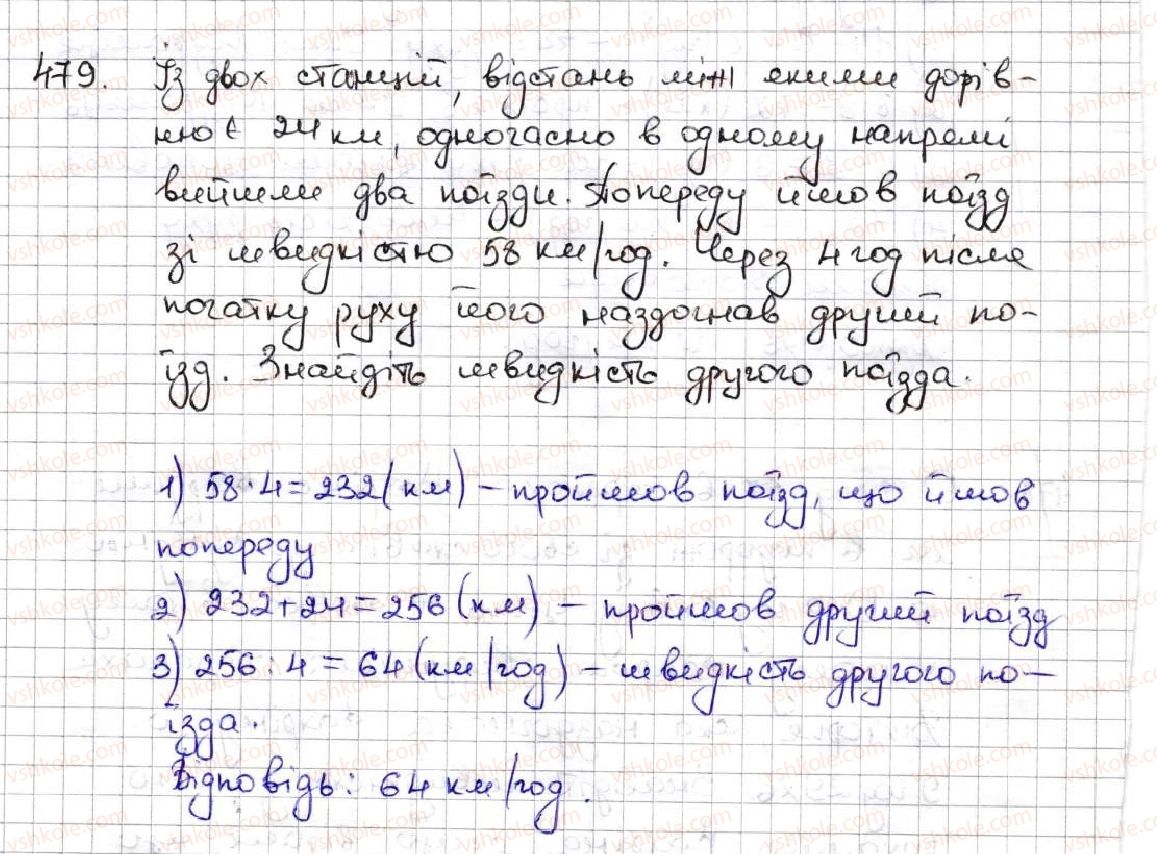 479. Із двох станцій, відстань між якими дорів-
нює 24 км, одночасно в одному напрямі
вийшли два поїзди. Попереду йшов поїзд
зі швидкістю 58 км/год. Через 4 год після
початку руху його наздогнав другий по-
їзд. Знайдіть швидкість другого поїзда.
1) 58·4=232(км) – пройшов поїзд, що йшов
попереду
2) 232+24=256(км) – пройшов другий поїзд
3) 256:4=64(км/год) – швидкість другого по-
їзда.
Відповідь: 64 км/год.